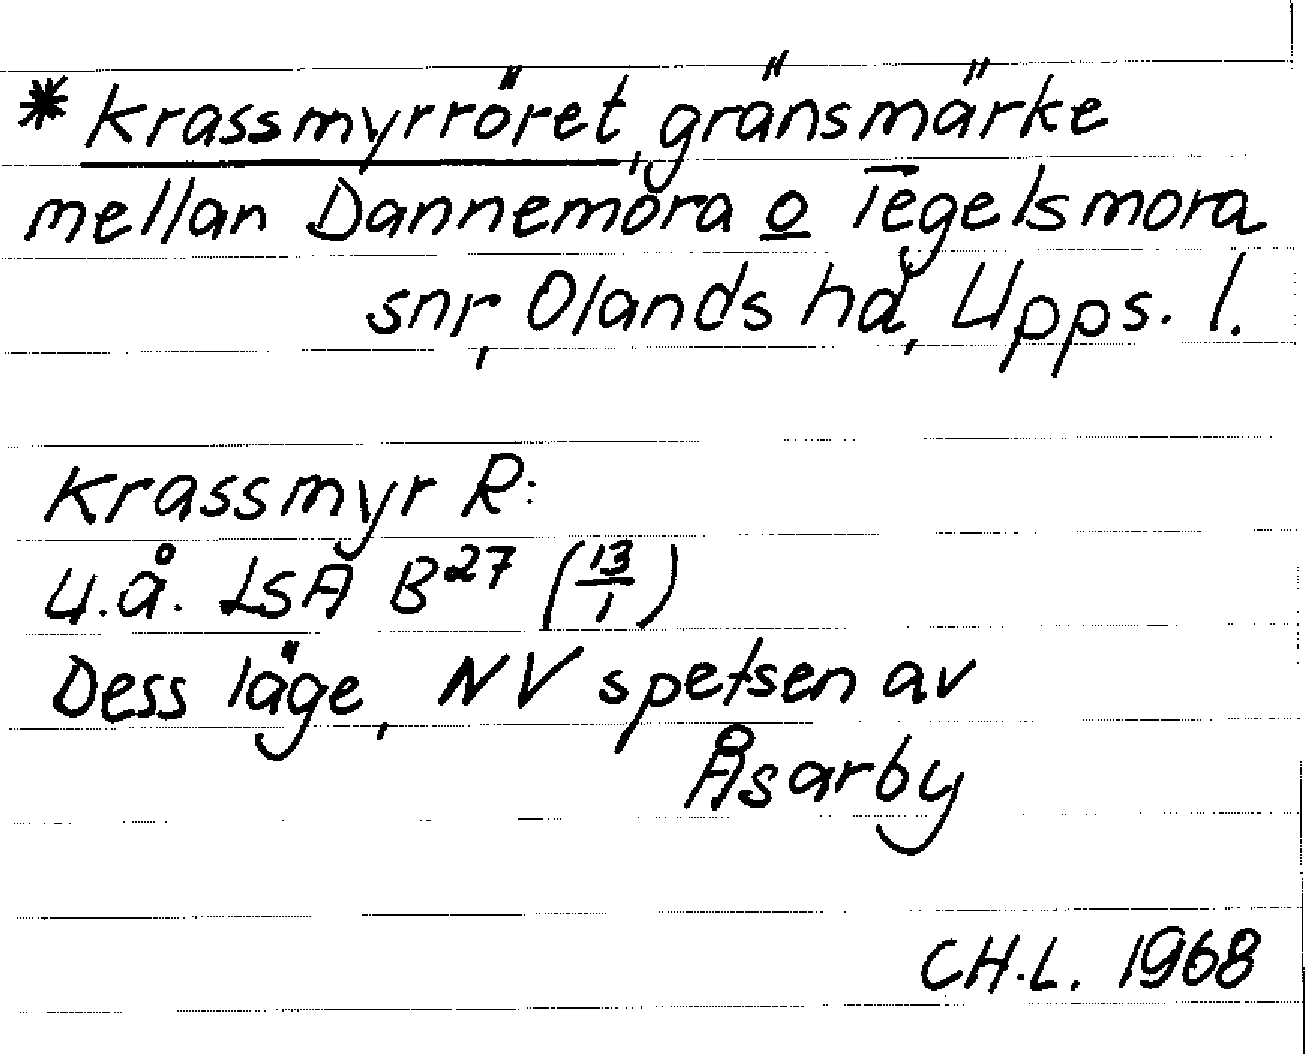 * Krassmyrröret, gränsmärke
mellan Dannemora o Tegelsmora
snr, Olands hd, Upps. l.
Krassmyr R:
U.å. LSA B27 (13/1)
Dess läge, NV spetsen av
Åsarby
CH.L. 1968